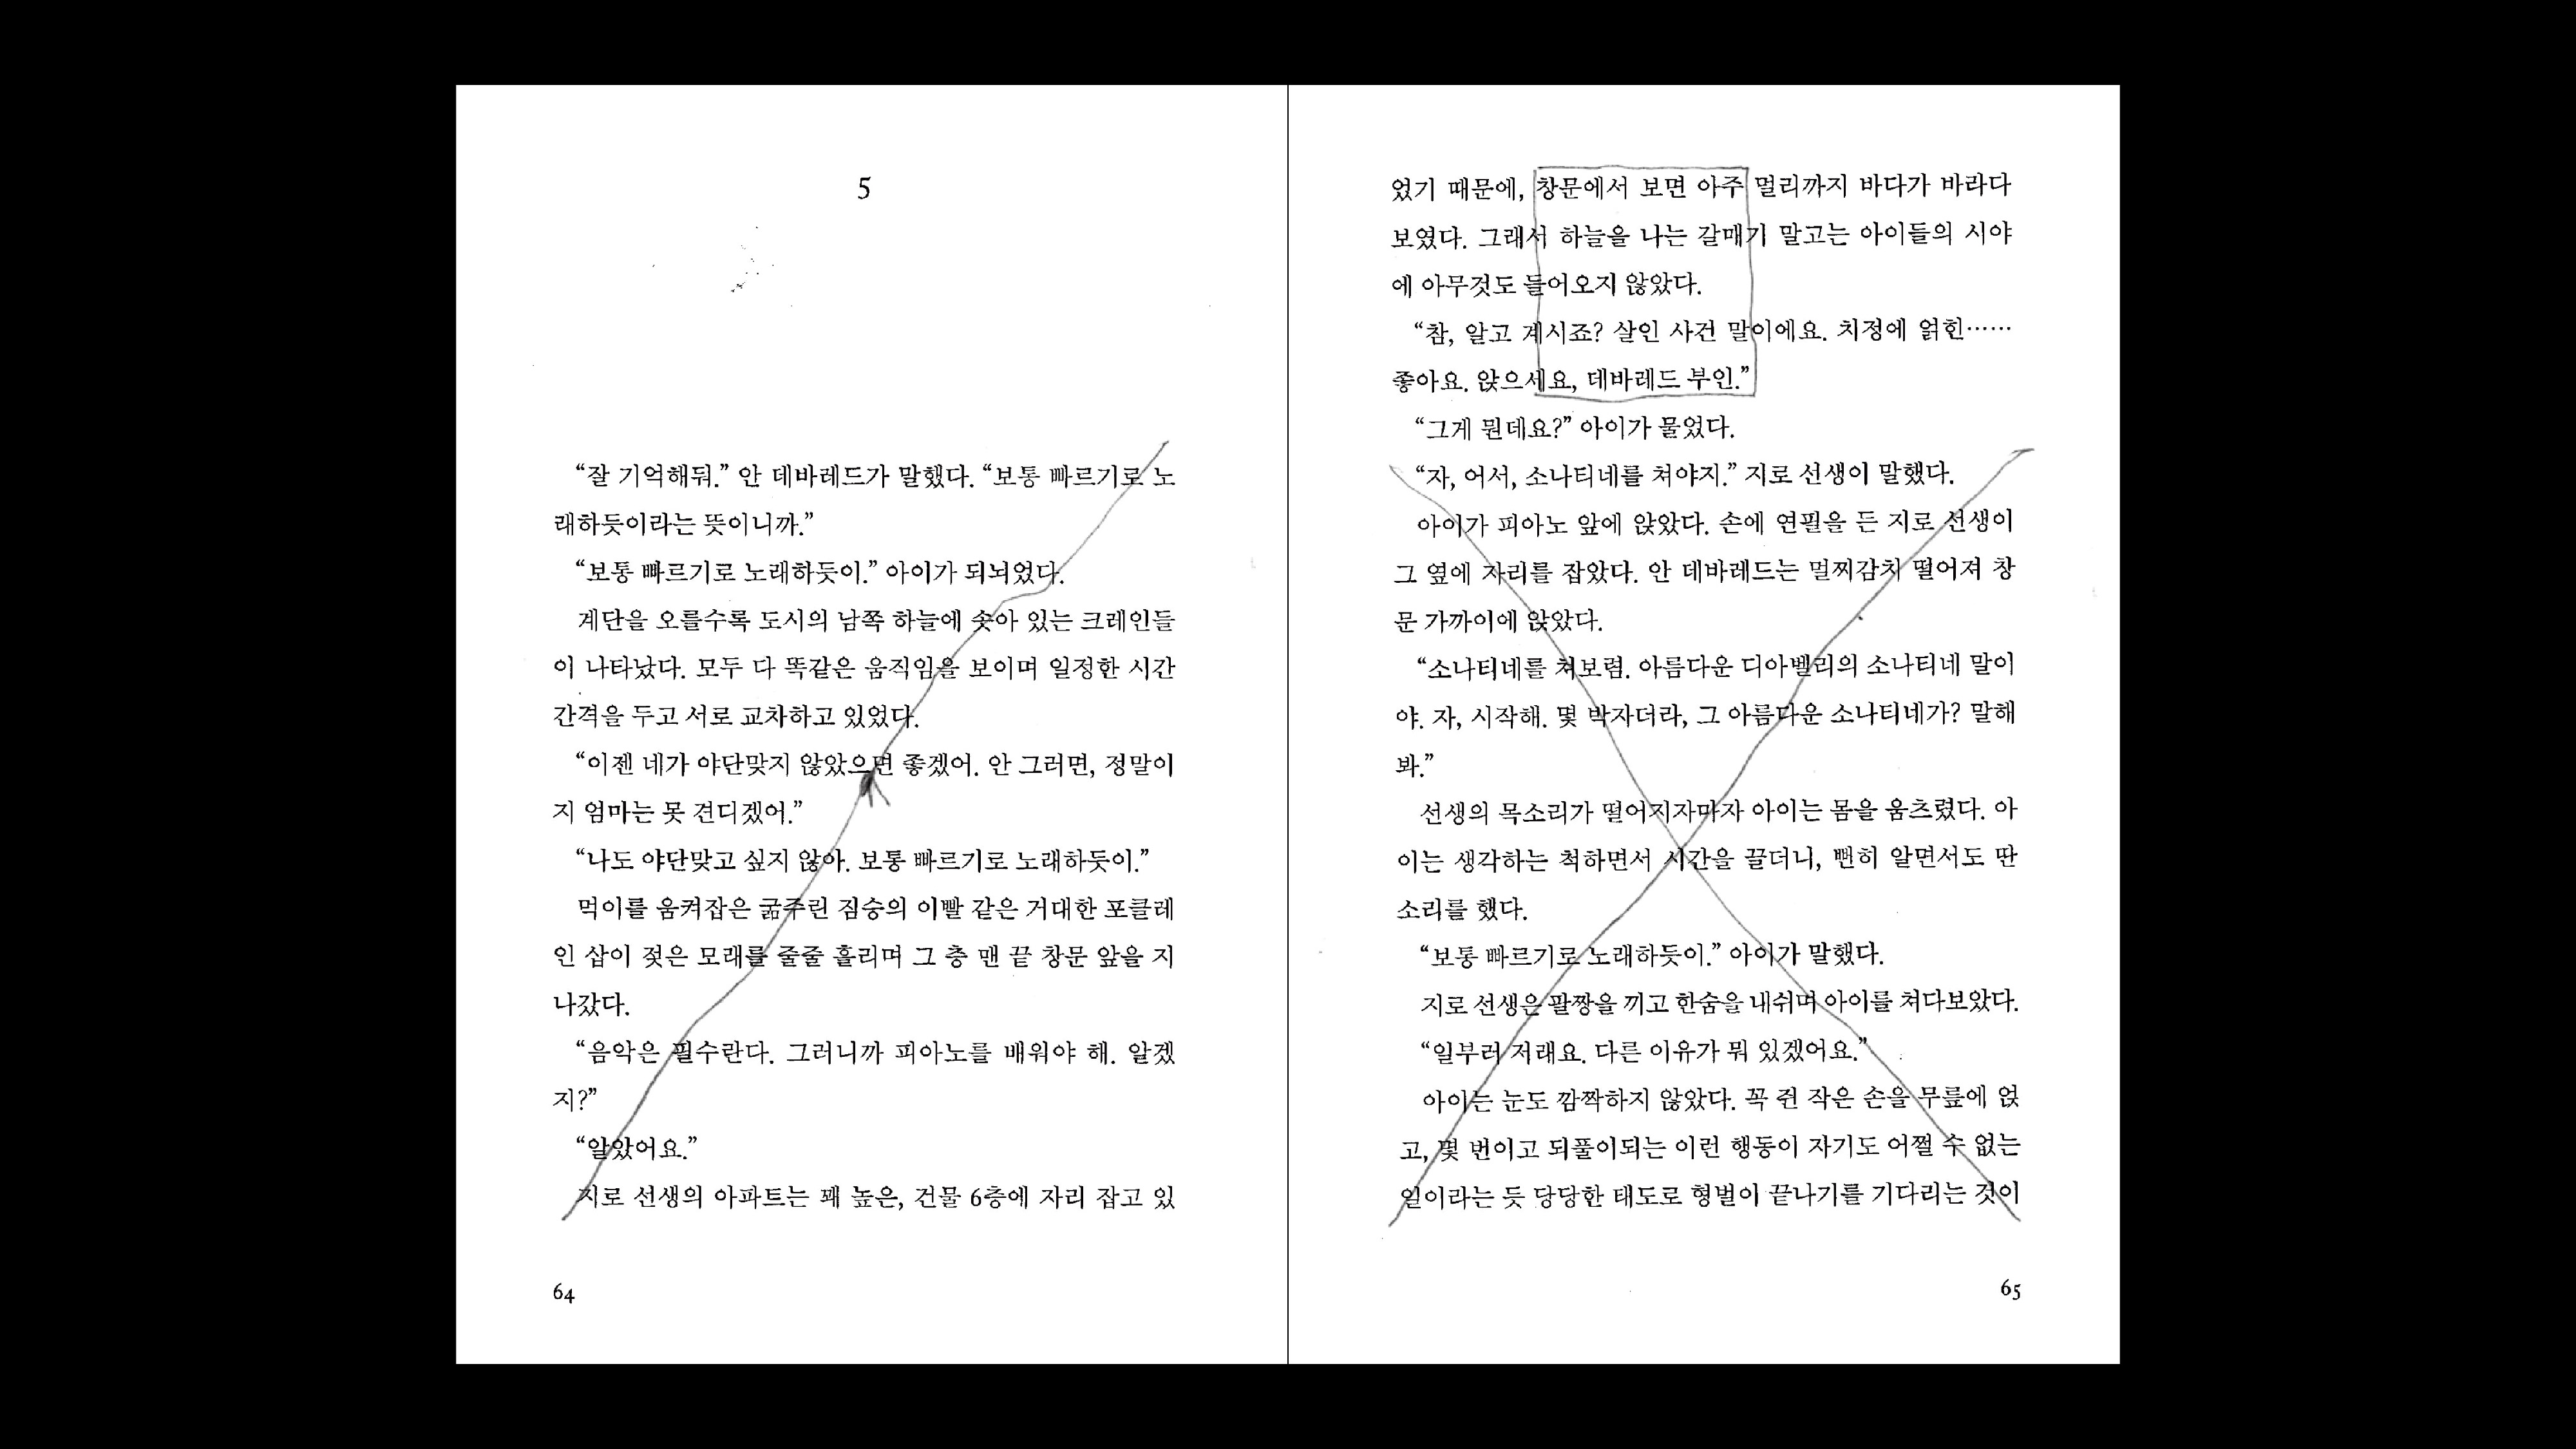 5
“잘 기억해둬.” 안 데바레드가 말했다. “보통 빠르기로 노
래하듯이라는 뜻이니까.”
“보통 빠르기로 노래하듯이.” 아이가 되뇌었다.
계단을 오를수록 도시의 남쪽 하늘에 솟아 있는 크레인들
이 나타났다. 모두 다 똑같은 움직임을 보이며 일정한 시간
간격을 두고 서로 교차하고 있었다.
“이젠 네가 야단맞지 않았으면 좋겠어. 안 그러면, 정말이
지 엄마는 못 견디겠어.”
“나도 야단맞고 싶지 않아. 보통 빠르기로 노래하듯이.”
먹이를 움켜잡은 굶주린 짐승의 이빨 같은 거대한 포클레
인 삽이 젖은 모래를 줄줄 흘리며 그 층 맨 끝 창문 앞을 지
나갔다.
“음악은 필수란다. 그러니까 피아노를 배워야 해. 알겠
지?”
“알았어요.”
지로 선생의 아파트는 꽤 높은, 건물 6층에 자리 잡고 있
64
었기 때문에, 창문에서 보면 아주 멀리까지 바다가 바라다
보였다. 그래서 하늘을 나는 갈매기 말고는 아이들의 시야
에 아무것도 들어오지 않았다.
“참, 알고 계시죠? 살인 사건 말이에요. 치정에 얽힌……
좋아요. 앉으세요, 데바레드 부인.”
“그게 뭔데요?” 아이가 물었다.
“자, 어서, 소나티네를 쳐야지.” 지로 선생이 말했다.
아이가 피아노 앞에 앉았다. 손에 연필을 든 지로 선생이
그 옆에 자리를 잡았다. 안 데바레드는 멀찌감치 떨어져 창
문 가까이에 앉았다.
“소나티네를 쳐보렴. 아름다운 디아벨리의 소나티네 말이
야. 자, 시작해. 몇 박자더라, 그 아름다운 소나티네가? 말해
봐.”
선생의 목소리가 떨어지자마자 아이는 몸을 움츠렸다. 아
이는 생각하는 척하면서 시간을 끌더니, 뻔히 알면서도 딴
소리를 했다.
“보통 빠르기로 노래하듯이.” 아이가 말했다.
지로 선생은 팔짱을 끼고 한숨을 내쉬며 아이를 쳐다보았다.
“일부러 저래요. 다른 이유가 뭐 있겠어요.”
아이는 눈도 깜짝하지 않았다. 꼭 쥔 작은 손을 무릎에 얹
고, 몇 번이고 되풀이되는 이런 행동이 자기도 어쩔 수 없는
일이라는 듯 당당한 태도로 형벌이 끝나기를 기다리는 것이
65